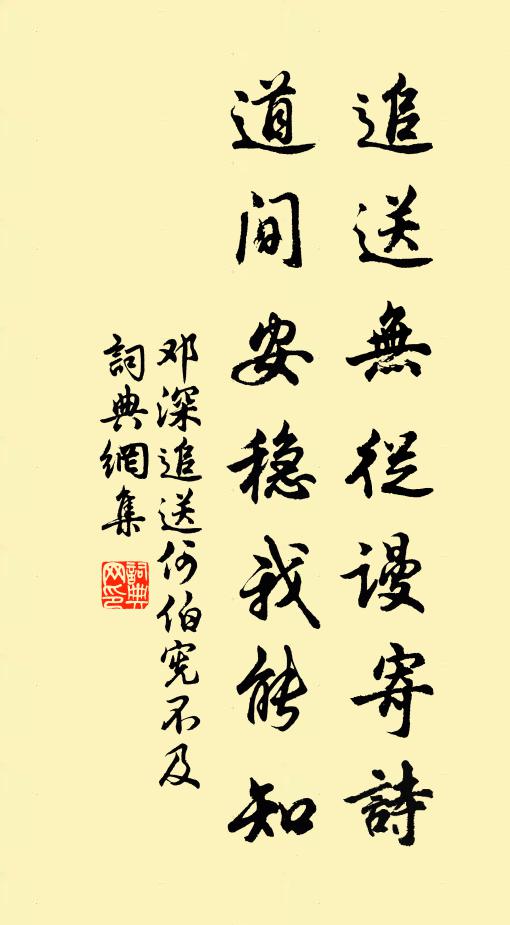 追送無從謾寄詩
道間安穩我能知
邓深追送何伯宪不及
詞典網集
詞典网印